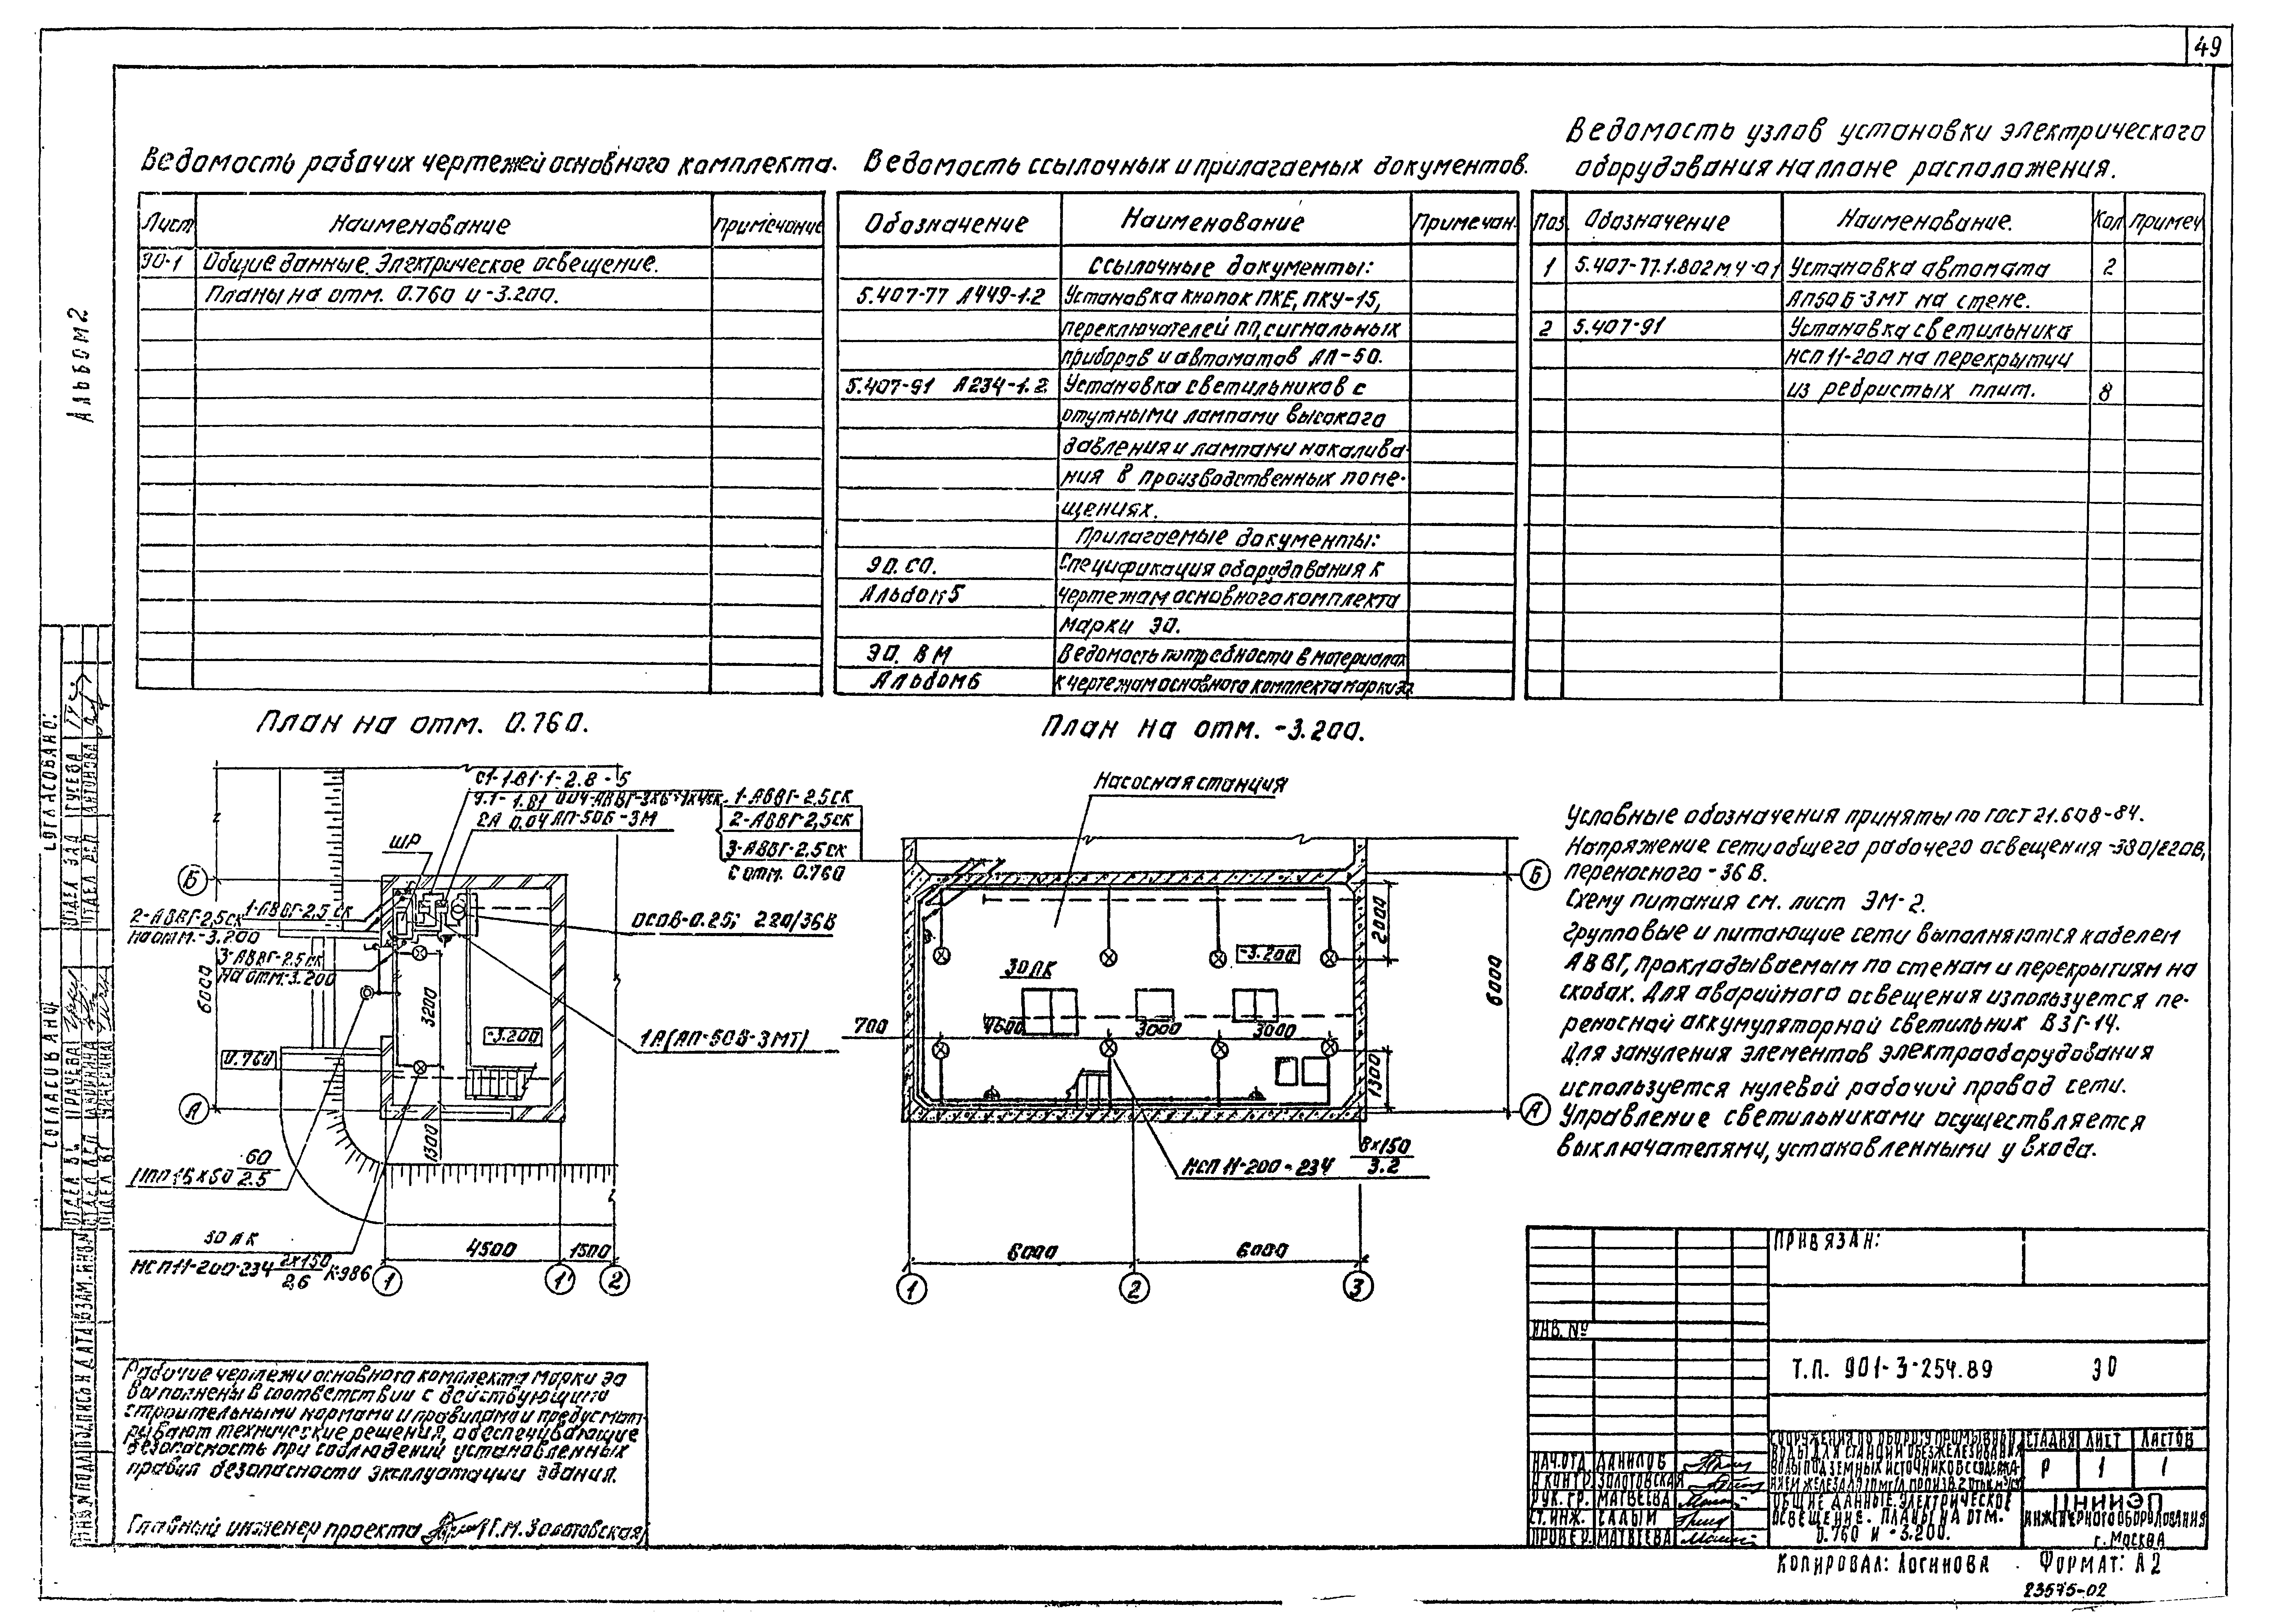 49
Альбом 2
Ведомость рабочих чертежей основного комплекта.
Лист Наименование Примечание
ЭО-1 Общие данные. Электрическое освещение.
Планы на отм. 0.760 и -3.200.
Ведомость ссылочных и прилагаемых документов.
Обозначение Наименование Примечан.
Ссылочные документы:
5.407-77 А449-1.2 Установка кнопок ПКЕ, ПКУ-15,
переключателей ПП, сигнальных
приборов и автоматов АП-50.
5.407-91 А234-1.2 Установка светильников с
ртутными лампами высокого
давления и лампами накалива-
ния в производственных поме-
щениях.
Прилагаемые документы:
ЭО. СО. Спецификация оборудования к
Альбом 5 чертежам основного комплекта
марки ЭО.
ЭО. ВМ Ведомость потребности в материалах
Альбом 6 к чертежам основного комплекта марки ЭО
Ведомость узлов установки электрического
оборудования на плане расположения.
Поз. Обозначение Наименование. Кол Примеч
1 5.407-77.1.802м.ч-01 Установка автомата 2
АП50Б-3МТ на стене.
2 5.407-91 Установка светильника
НСП11-200 на перекрытии
из ребристых плит. 8
План на отм. 0.760.
С1-1.В1-1-2.8-5
1.В1
2А 0.04 АП-50Б-3М
ШР
Б
1-АВВГ-2,5 ск
2-АВВГ-2,5ск
на отм.-3.200
3-АВВГ-2.5ск
на отм.-3.200
ОСОВ-0.25; 220/36В
6000
3200
-3.200
1А(АП-50Б-3МТ)
0.760
А
1300
60
2.5
30 ЛК
НСП11-200-234 2х150
2,6
К-986
4500 1500
1 1' 2
План на отм. -3.200.
Насосная станция
1-АВВГ-2,5ск
2-АВВГ-2,5ск
3-АВВГ-2,5ск
С отм. 0.760
Б
2000
-3.200
30 ЛК
6000
700 4600 3000 3000
1300
А
НСП 11-200-234 8х150
3.2
6000 6000
1 2 3
Условные обозначения приняты по гост 21.608-84.
Напряжение сети общего рабочего освещения -380/220В,
переносного - 36 В.
Схему питания см. лист ЭМ-2.
Групповые и питающие сети выполняются кабелем
АВВГ, прокладываемым по стенам и перекрытиям на
скобах. Для аварийного освещения используется пе-
реносной аккумуляторной светильник ВЗГ-14.
Для зануления элементов электрооборудования
используется нулевой рабочий провод сети.
Управление светильниками осуществляется
выключателями, установленными у входа.
Рабочие чертежи основного комплекта марки ЭО
выполнены в соответствии с действующими
строительными нормами и правилами и предусмат-
ривают технические решения, обеспечивающие
безопасность при соблюдении установленных
правил безопасности эксплуатации здания.
Главный инженер проекта (Г.М. Золотовская)
СОГЛАСОВАНО:
СОГЛАСОВАНО
ГУСЕВА
АНТОНОВА
ГРАЧЕВА
ПРИВЯЗАН:
ИНВ. №
Т.П. 901-3-254.89 ЭО
СООРУЖЕНИЯ ПО ОБОРОТУ ПРОМЫВНОЙ
ВОДЫ ДЛЯ СТАНЦИИ ОБЕЗЖЕЛЕЗИВАНИЯ
ВОДЫ ПОДЗЕМНЫХ ИСТОЧНИКОВ С СОДЕРЖА-
СТАДИЯ ЛИСТ ЛИСТОВ
Р 1 1
НАЧ.ОТД ДАНИЛОВ
Н КОНТР ЗОЛОТОВСКАЯ
РУК. ГР. МАТВЕЕВА
СТ. ИНЖ. САДЫМ
ПРОВЕР. МАТВЕЕВА
ОБЩИЕ ДАННЫЕ. ЭЛЕКТРИЧЕСКОЕ
ОСВЕЩЕНИЕ. ПЛАНЫ НА ОТМ.
0.760 И -3.200.
ЦНИИЭП
ИНЖЕНЕРНОГО ОБОРУДОВАНИЯ
г. МОСКВА
КОПИРОВАЛ: ЛОГИНОВА ФОРМАТ: А2
23575-02